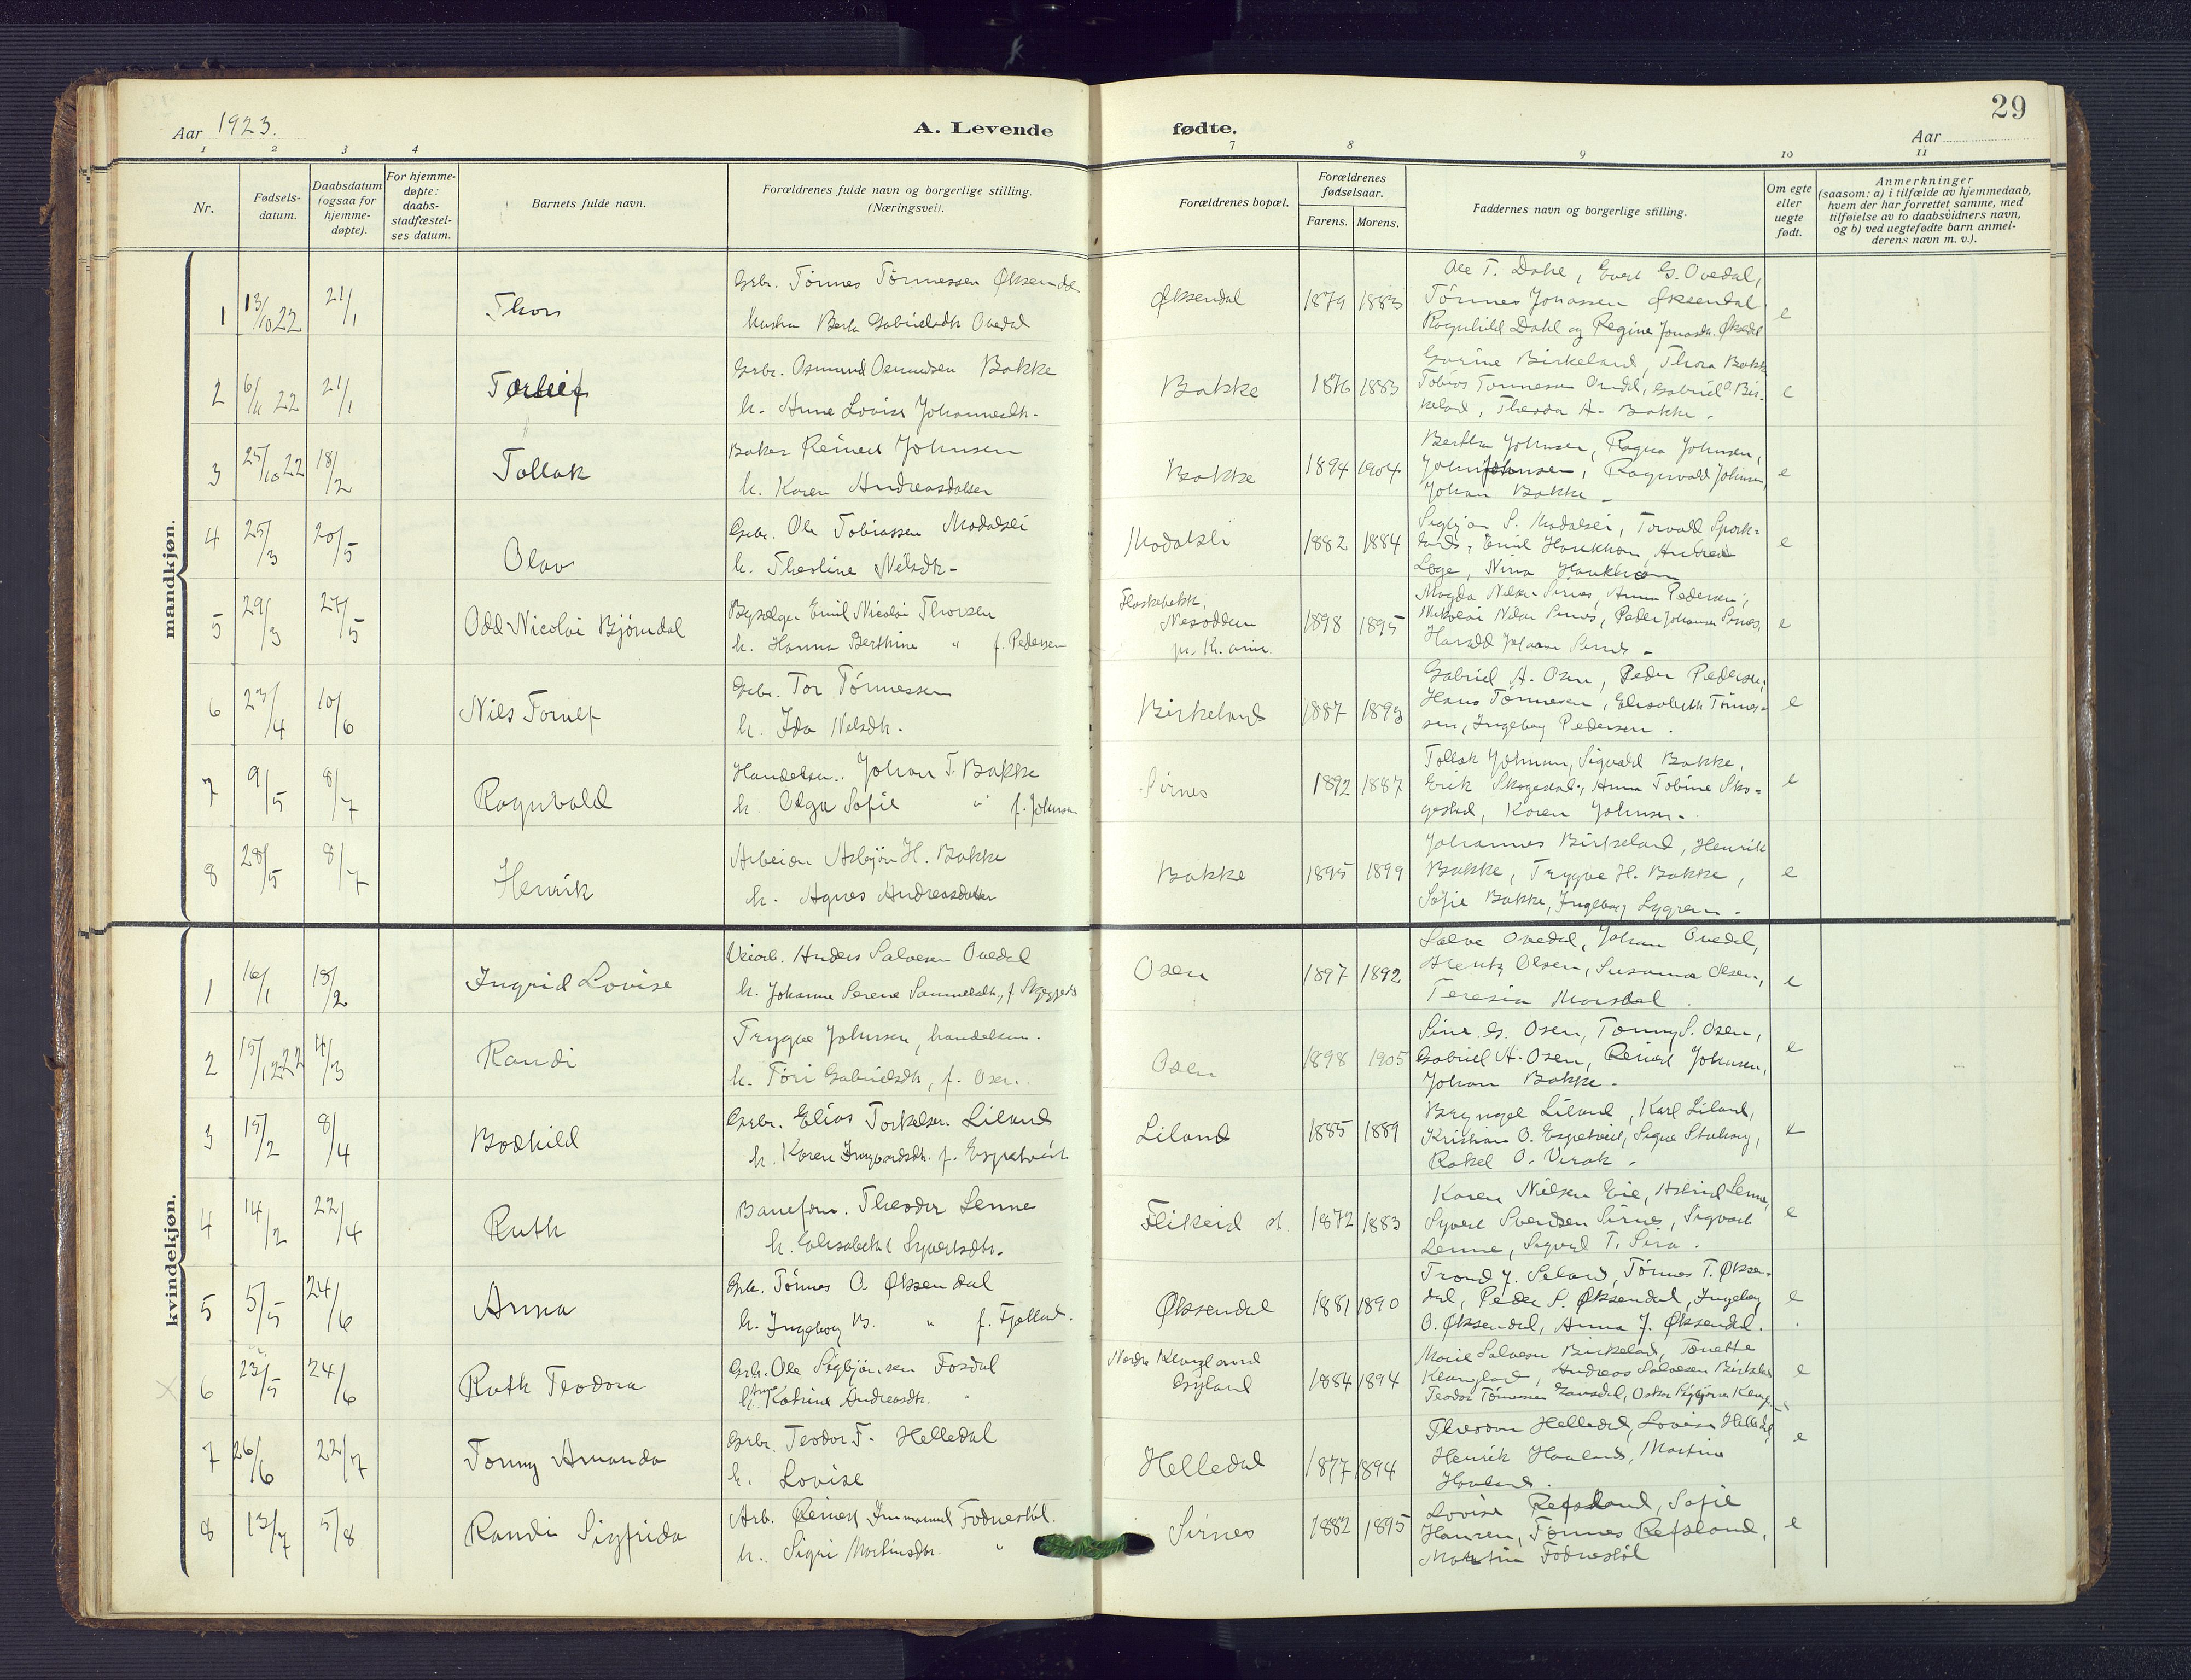 29
Aar 1923.
A. Levende
fødte.
Aar
1 2 3 4 7 8 9 10 11
Nr.
Fødsels-
datum.
Daabsdatum
(ogsaa for
hjemme-
døpte).
For hjemme-
døpte:
daabs-
stadfæstel-
ses datum.
Barnets fulde navn.
Forældrenes fulde navn og borgerlige stilling.
(Næringsvei).
Forældrenes bopæl.
Forældrenes
fødselsaar.
Farens. Morens.
Faddernes navn og borgerlige stilling.
Om egte
eller
uegte
født.
Anmerkninger
(saasom: a) i tilfælde av hjemmedaab,
hvem der har forrettet samme, med
tilføielse av to daabsvidners navn,
og b) ved uegtefødte barn anmel-
derens navn m. v.).
mandkjøn.
1 13/10 22 21/1 Thor
Gbr. Tönnes Tönnessen Øksendal
Hustru Berta Gabrielsdtr Ovedal
Øksendal 1879 1883
Ole T. Dahl, Evert G. Ovedal,
Tönnes Jonassen Øksendal
Ragnhild Dahl og Regine Jonasdtr. Øksendal
e
2 6/11 22 21/1 Torleif
Grbr. Osmund Osmundsen Bakke
h. Anne Lovise Johannesdtr.
Bakke 1876 1883
Gurine Birkeland, Thora Bakke
Tobias Tønnessen Ovedal, Gabriel O. Bir-
keland, Theodor A. Bakke.
e
3 25/10 22 18/2 Tollak
Baker Reinert Johnsen
h. Karen Andreasdatter
Bakke 1894 1904
Bertha Johnsen, Ragna Johnsen,
John Johnsen, Ragnvald Johnsen,
Johan Bakke.
e
4 25/3 20/5 Olav
Gbr. Ole Tobiassen Modalsli
h. Theoline Nilsdtr.
Modalsli 1882 1884
Sigbjørn S. Modalsli, Torvald Spork-
land, Emil Haukhom, Andrea
Loge, Nina Haukhom
e
5 29/3 27/5 Odd Nicolai Bjørndal
Emil Nicolai Thorsen
h. Hanna Berthine " f. Pedersen
Flaskebekk,
Nesodden
pr. Kr.ania.
1898 1895
Magda Nilsen Sirnes, Anna Pedersen,
Nikolai Nilsen Sirnes, Peder Johansen Sirnes,
Harald Johansen Sirnes
e
6 23/4 10/6 Nils Tornlf
Gbr. Tor Tönnessen
h. Ida Nilsdtr.
Birkeland 1887 1893
Gabriel A. Osen, Peder Pedersen,
Hans Tönnessen, Elisabeth Tönnes-
sen, Ingeborg Pedersen.
e
7 9/5 8/7 Ragnvald
Handelsm. Johan T. Bakke
h. Olga Sofie " f. Johnsen
Sirnes 1892 1887
Tollak Johnsen, Sigvald Bakke,
Erik Skogestad, Anna Tobine Sko-
gestad, Karen Johnsen.
e
8 28/5 8/7 Henrik
Arbeider Asbjörn H. Bakke
h. Agnes Andreasdatter
Bakke 1895 1899
Johannes Birkeland, Henrik
Bakke, Trygve H. Bakke,
Sofie Bakke, Ingeborg Lygren.
e
kvindekjøn.
1 16/1 18/2 Ingrid Lovise
Veiarb. Anders Salvesen Ovedal
h. Johanne Serene Sammelsdtr., f.
Osen 1897 1892
Salve Ovedal, Johan Ovedal,
Hentz Olsen, Susanna Olsen,
Teresia Mosdal.
e
2 15/12 22 4/3 Randi
Trygve Johnsen, handelsm.
h. Töri Gabrielsdtr, f. Osen.
Osen 1898 1905
Sine G. Osen, Tonny S. Osen,
Gabriel A. Osen, Reinert Johnsen,
Johan Bakke.
e
3 15/2 8/4 Bodhild
Grbr. Elias Torkelsen Liland
h. Karen Ingvardsdtr. f. Espetveit
Liland 1885 1889
Bryngel Liland, Karl Liland,
Kristian O. Espetveit, Signe Stuhaug,
Rakel O. Virak.
e
4 14/2 22/4 Ruth
Baneform. Theodor Lenne
h. Elisabeth Syvertsdtr.
Flikeid st. 1872 1883
Karen Nielsen Eie, Astrid Lenne,
Syvert Svendsen Sirnes, Sigvart
Lenne, Sigurd T. Sira.
e
5 5/5 24/6 Anna
Gbr. Tönnes O. Øksendal
h. Ingeborg B. " f. Fjotland.
Øksendal 1881 1890
Trond J. Seland, Tönnes T. Øksen-
dal, Peder S. Øksendal, Ingeborg
O. Øksendal, Anna J. Øksendal.
e
6 23/5 24/6 Ruth Teodora
Grbr. Ole Sigbjörnsen Fosdal
h. Katrine Andreasdtr. "
Nordre Klungland
Gyland
1884 1894
Marie Salvesen Birkeland, Tonette
Klungland, Andreas Salvesen Birkeland
Teodor Tönnessen
e
7 26/6 22/7 Tonny Amanda
Grbr. Teodor F. Helledal
h. Lovise
Helledal 1877 1894
Theodor Helledal, Lovise Helledal,
Henrik Hovland, Martine
Hovland.
e
8 13/7 5/8 Randi Sigfrida
Arb. Reinert Immanuel Fodnestöl.
h. Sigri Martinsdtr. "
Sirnes 1882 1895
Lovise Refsland, Sofie
Hansen, Tønnes Refsland,
Martin Fodnestöl
e